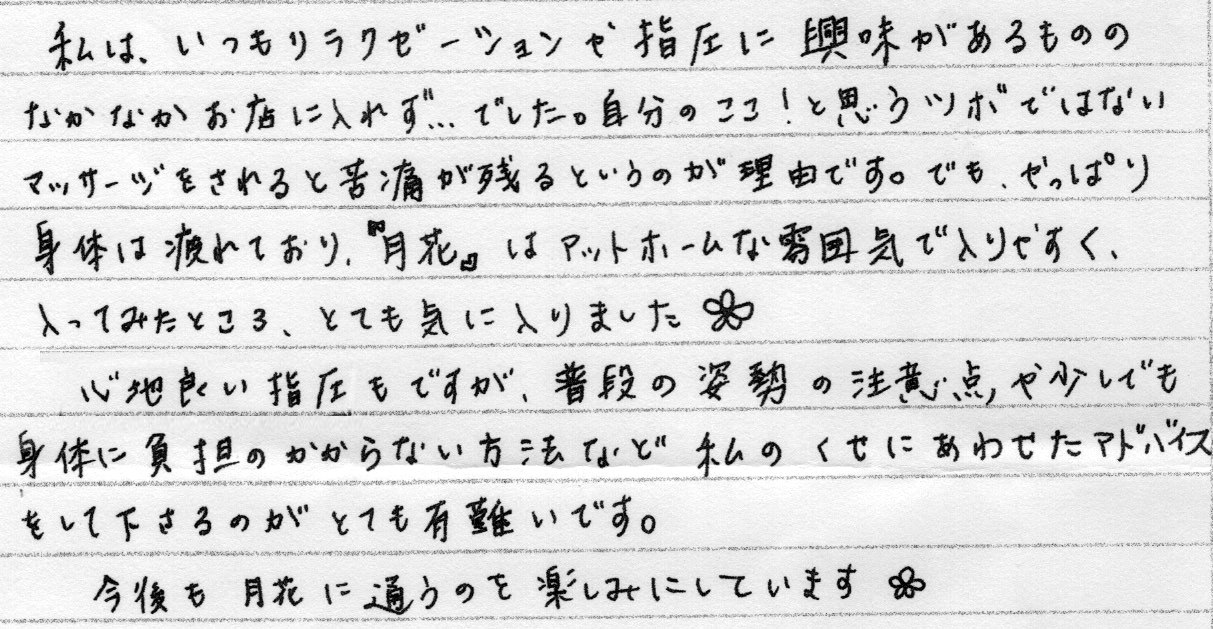 私は、いつもリラクゼーションや指圧に興味があるものの
なかなかお店に入れず…でした。自分のここ！と思うツボではない
マッサージをされると苦痛が残るというのが理由です。でも、やっぱり
身体は疲れており、『月花』はアットホームな雰囲気で入りやすく、
入ってみたところ、とても気に入りました
心地良い指圧もですが、普段の姿勢の注意点,や少しでも
身体に負担のかからない方法など私のくせにあわせたアドバイス
をして下さるのがとても有難いです。
今後も月花に通うのを楽しみにしています